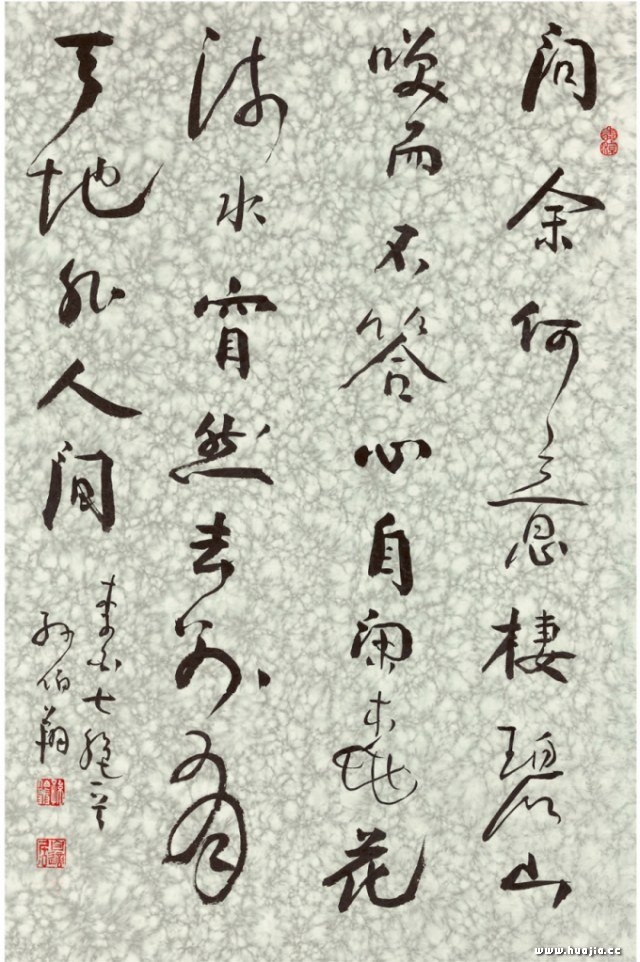 问余何意棲碧山
咲而不答心自闲桃花
流水窅然去别有
天地非人间
李白七绝一首
孙伯翔
www.huajia.cc